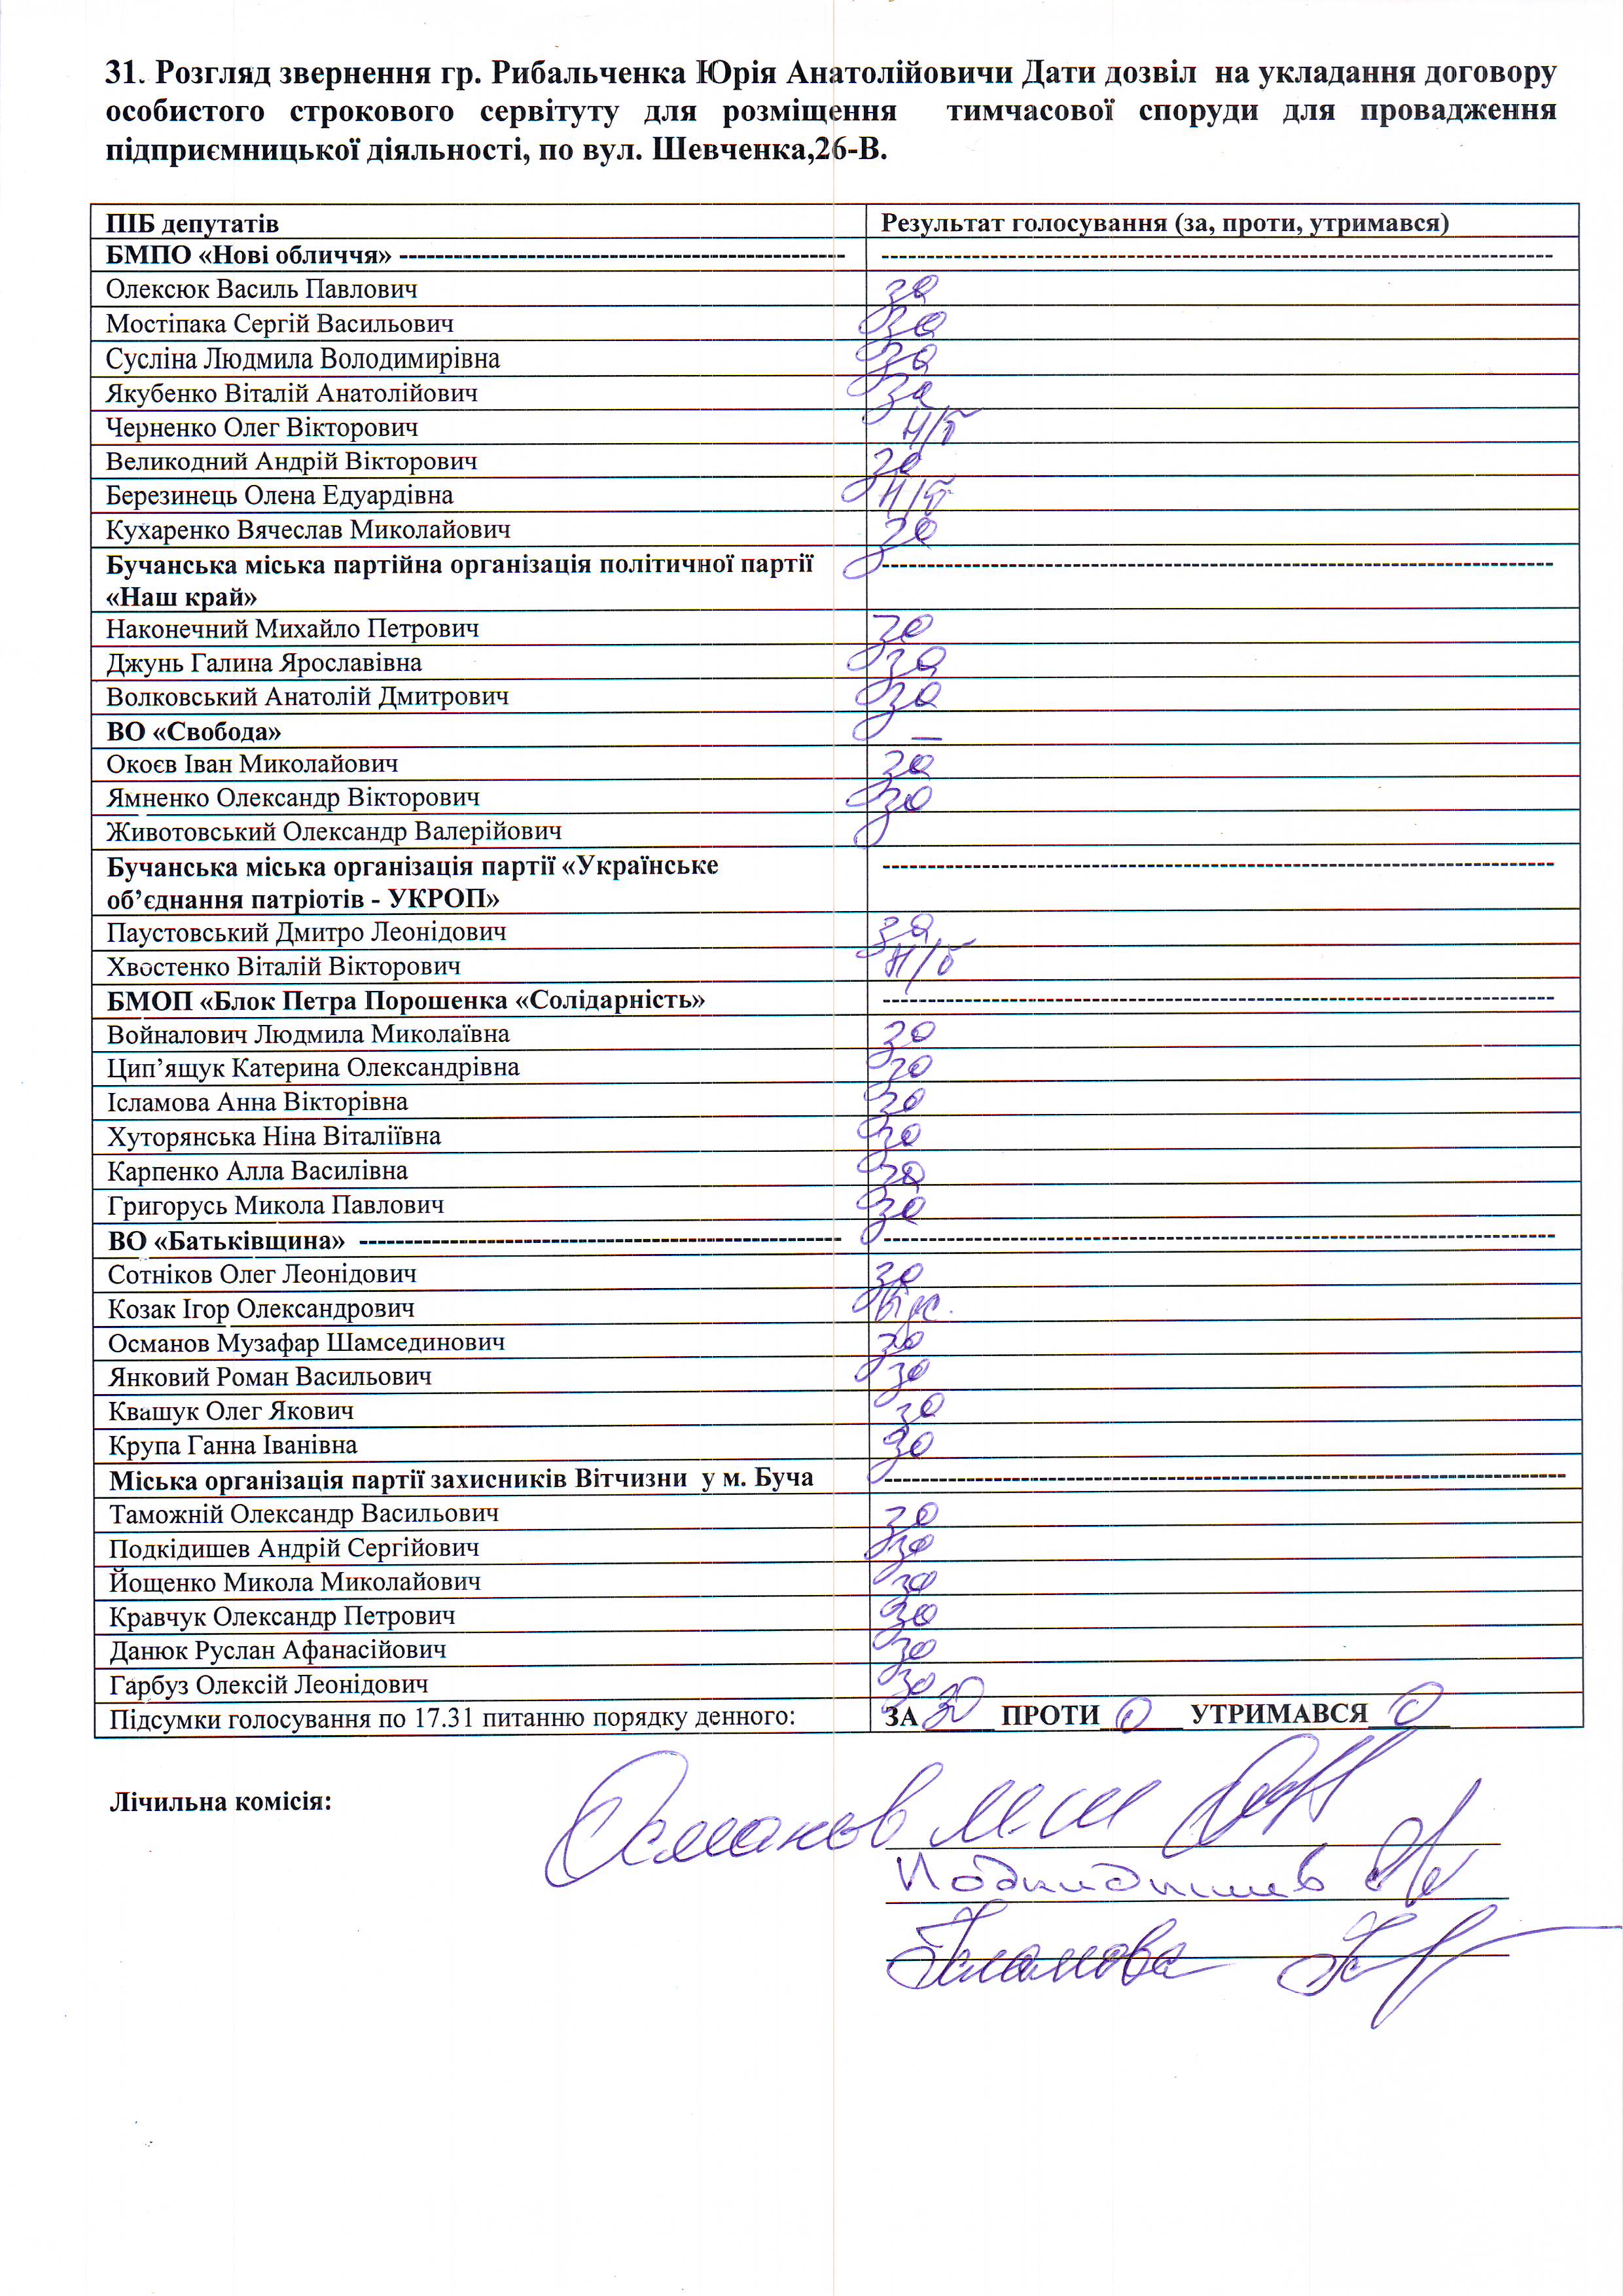 31. Розгляд звернення гр. Рибальченка Юрія Анатолійовичи Дати дозвіл на укладання договору
особистого строкового сервітуту для розміщення тимчасової споруди для провадження
підприємницької діяльності, по вул. Шевченка,26-В.
ПІБ депутатів Результат голосування (за, проти, утримався)
БМПО «Нові обличчя» ------------------------------------------------- --------------------------------------------------------------------------
Олексюк Василь Павлович за
Мостіпака Сергій Васильович за
Сусліна Людмила Володимирівна за
Якубенко Віталій Анатолійович за
Черненко Олег Вікторович н/б
Великодний Андрій Вікторович за
Березинець Олена Едуардівна н/б
Кухаренко Вячеслав Миколайович за
Бучанська міська партійна організація політичної партії --------------------------------------------------------------------------
«Наш край»
Наконечний Михайло Петрович за
Джунь Галина Ярославівна за
Волковський Анатолій Дмитрович за
ВО «Свобода» —
Окоєв Іван Миколайович за
Ямненко Олександр Вікторович за
Животовський Олександр Валерійович
Бучанська міська організація партії «Українське --------------------------------------------------------------------------
об’єднання патріотів - УКРОП»
Паустовський Дмитро Леонідович за
Хвостенко Віталій Вікторович н/б
БМОП «Блок Петра Порошенка «Солідарність» --------------------------------------------------------------------------
Войналович Людмила Миколаївна за
Цип’ящук Катерина Олександрівна за
Ісламова Анна Вікторівна за
Хуторянська Ніна Віталіївна за
Карпенко Алла Василівна за
Григорусь Микола Павлович за
ВО «Батьківщина» ----------------------------------------------------- --------------------------------------------------------------------------
Сотніков Олег Леонідович за
Козак Ігор Олександрович
Османов Музафар Шамсединович за
Янковий Роман Васильович за
Квашук Олег Якович за
Крупа Ганна Іванівна за
Міська організація партії захисників Вітчизни у м. Буча ---------------------------------------------------------------------------
Таможній Олександр Васильович за
Подкідишев Андрій Сергійович за
Йощенко Микола Миколайович за
Кравчук Олександр Петрович за
Данюк Руслан Афанасійович за
Гарбуз Олексій Леонідович за
Підсумки голосування по 17.31 питанню порядку денного: ЗА 30 ПРОТИ 0 УТРИМАВСЯ 0
Лічильна комісія: Османов М Ш
Подкидишев
Ісламова